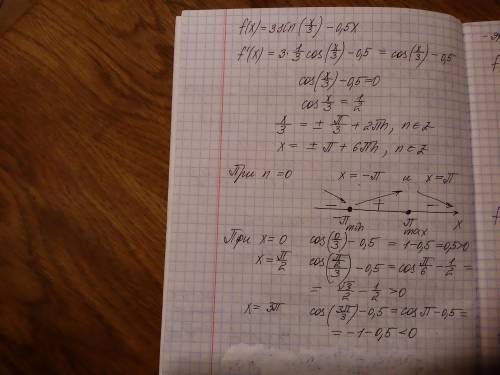 f(x) = 3sin(x/3) - 0,5x
f'(x) = 3·1/3 cos(x/3) - 0,5 = cos(x/3) - 0,5
cos(x/3) - 0,5 = 0
cos x/3 = 1/2
x/3 = ± π/3 + 2πn, n∈z
x = ± π + 6πn, n∈z
При n = 0 x = -π и x = π
- + -
-π min π max x
При x = 0 cos(0/3) - 0,5 = 1 - 0,5 = 0,5 > 0
x = π/2 cos((π/2)/3) - 0,5 = cos π/6 - 1/2 =
= √3/2 - 1/2 > 0
x = 3π cos(3π/3) - 0,5 = cos π - 0,5 =
= -1 - 0,5 < 0